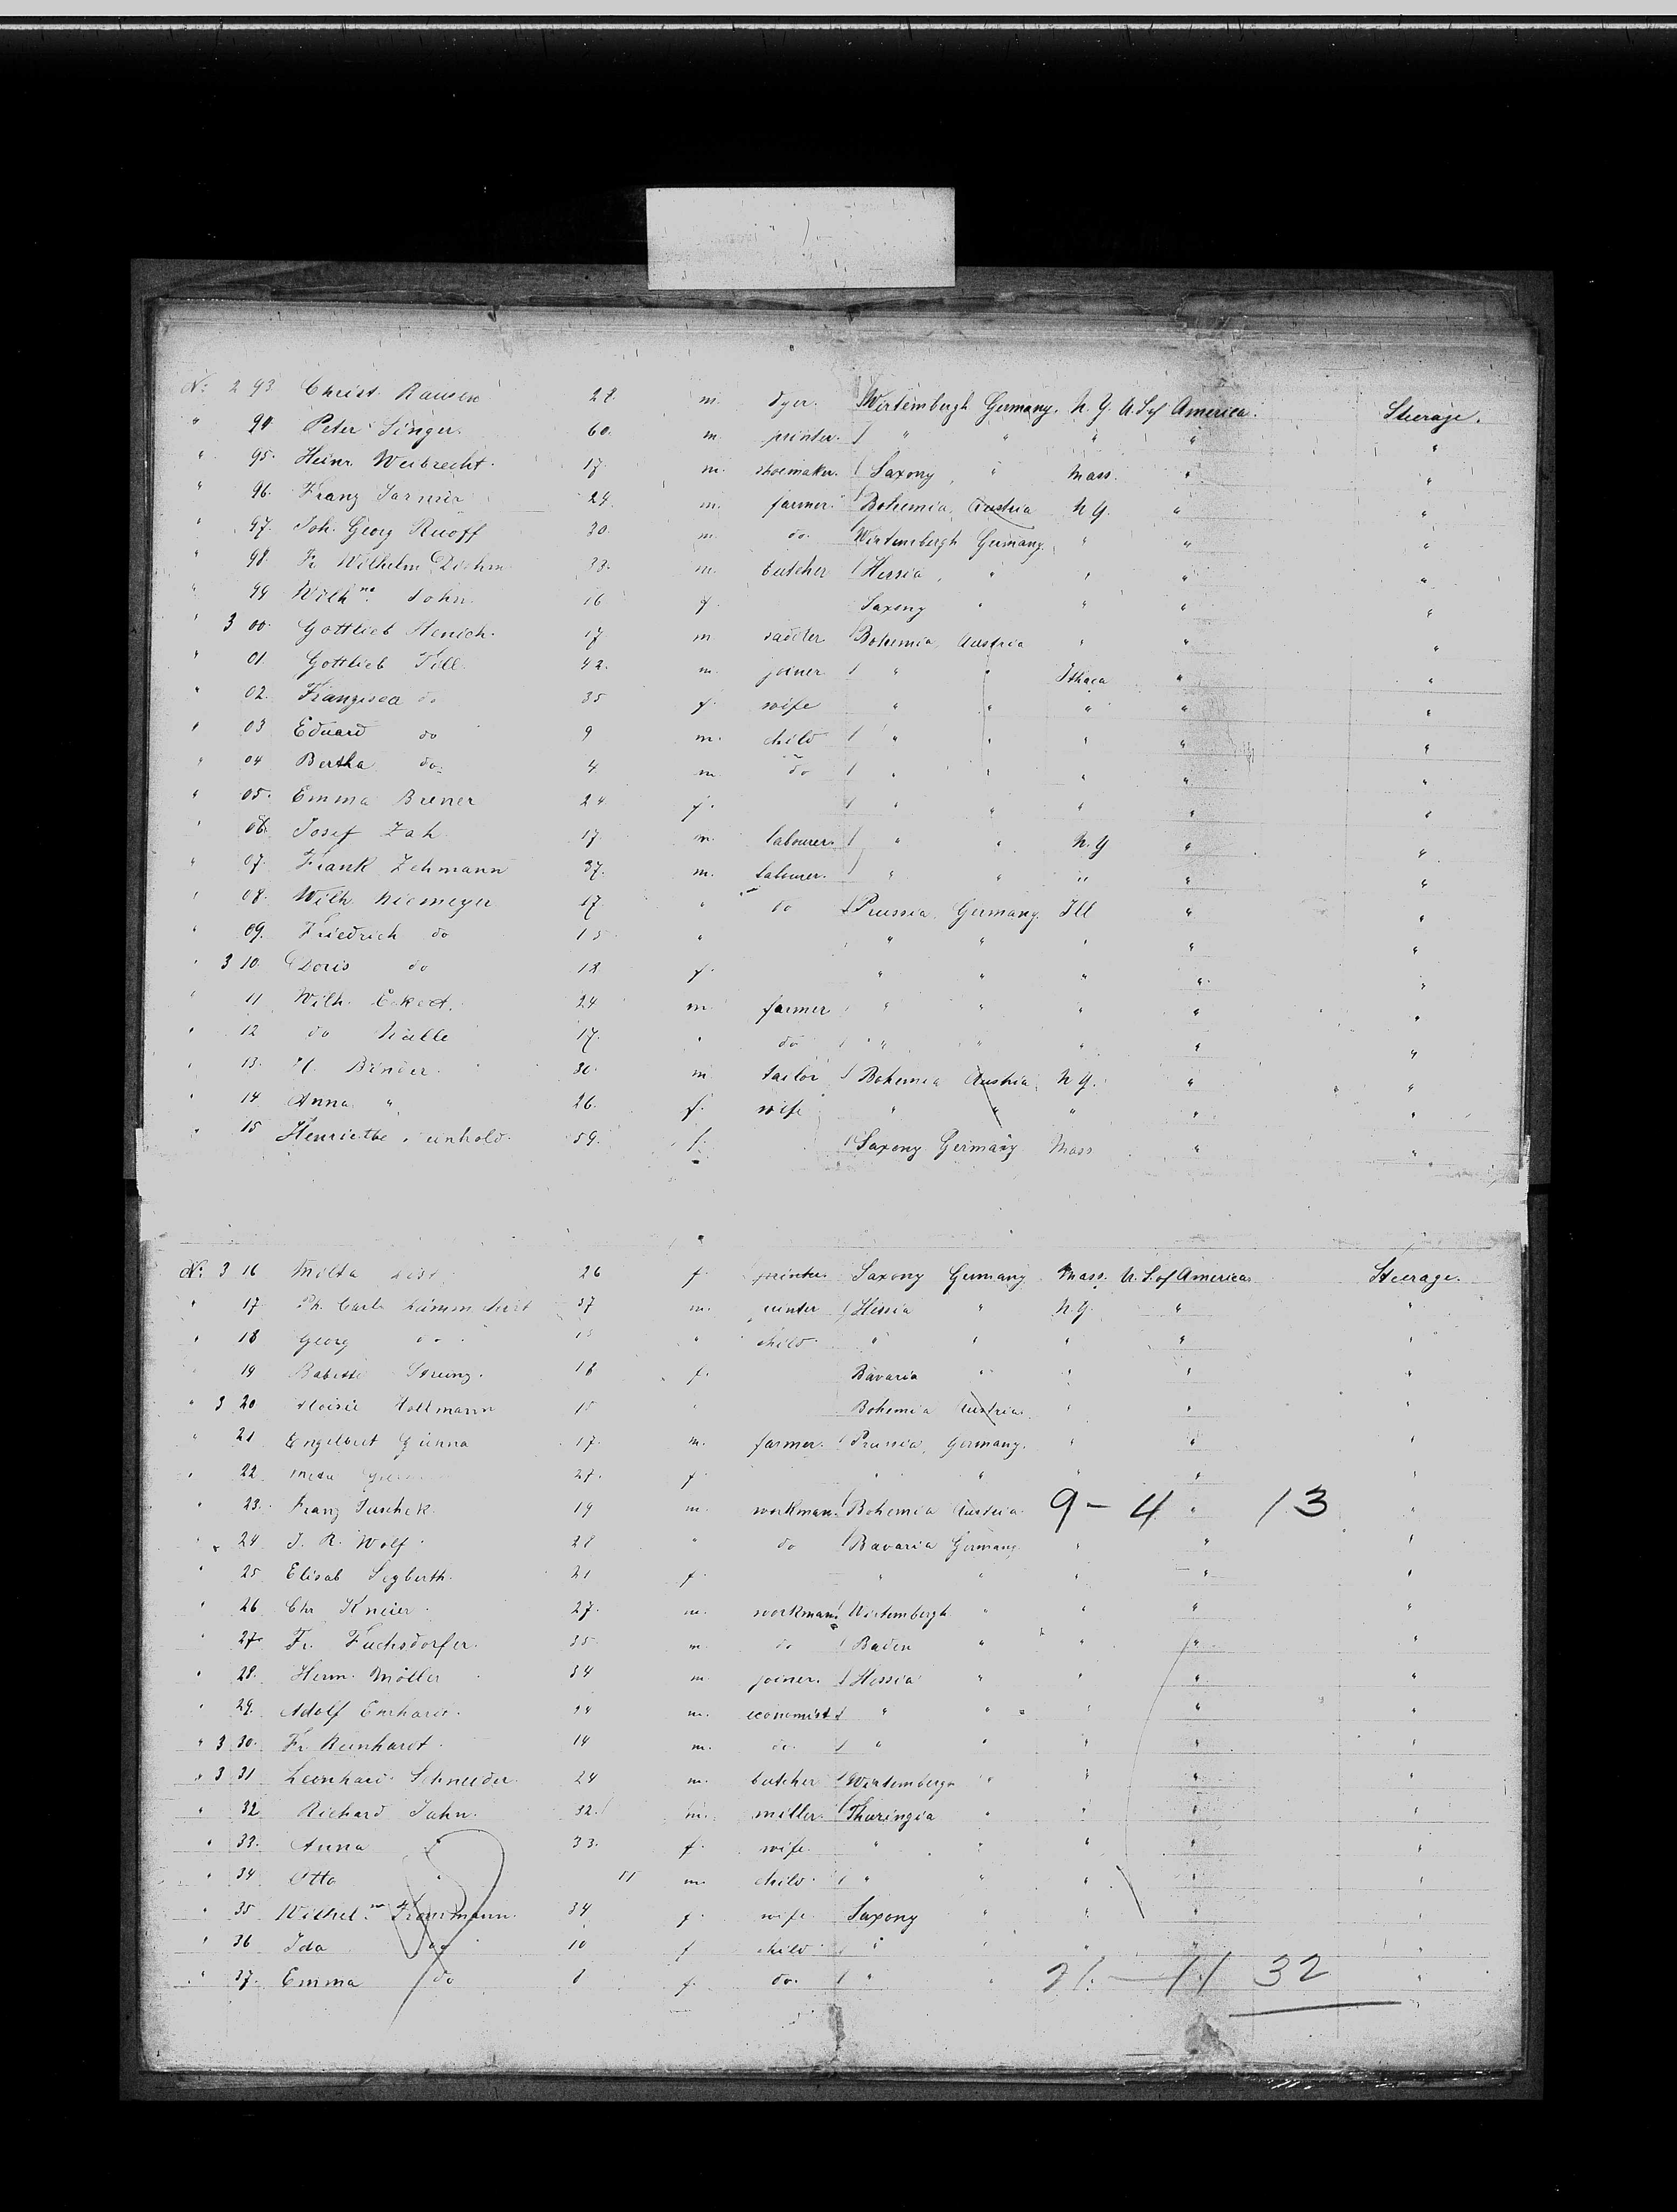 N: 2 93 Christ. Rausen 28. m. dyer. Wirtembergh Germany. N.Y. U.S of America. Steerage.
" 94 Peter Singer. 60. m. printer. " " " " "
" 95. Heinr. Weibrecht. 17 m. shoemaker. Saxony, " Mass. " "
" 96. Franz 24 m. farmer. Bohemia, Austria N.Y. " "
" 97. Joh. Georg Ruoff 30. m. do. Wirtembergh Germany. " " "
" 98. Fr. Wilhelm 33. m. butcher Hessia, " " " "
" 99 Wilh.ne John. 16 f. Saxony " " " "
" 3 00. Gottlieb Henich. 17 m. Bohemia, Austria " " "
" 01. Gottlieb Till. 42. m. joiner " " Ithaca " "
" 02. Franzisca do 35 f. wife " " " " "
" 03 Eduard do 9 m. child " " " " "
" 04 Bertha do. 4 m. do " " " " "
" 05. Emma Brener 24 f. " " " " "
" 06. Josef Zah 17 m. labourer. " " N.Y " "
" 07. Frank Zehmann 37. m. labourer. " " " " "
" 08. Wilh. Niemeyer 17 " do Prussia, Germany. Ill " "
" 09. Friedrich do 15 " " " " " "
" 3 10. Doris do 18 f. " " " " "
" 11 Wilh. Eckert. 24 m farmer " " " " "
" 12 do Nälle 17. " do " " " " "
" 13. H. Binder. 30. m tailor Bohemia Austria. N.Y. " "
" 14. Anna " 26. f. wife " " " " "
" 15 Henriette 59. f. Saxony Germany Mass " "
N: 3 16 Milda 26 f. Saxony Germany Mass. U.S. of America Steerage.
" 17 Ph. Carl 37 m. Hessia " N.Y. " "
" 18 Georg do. " child. " " " " "
" 19 Babette 18 f. Bavaria " " " "
" 3 20 Hollmann 15 " Bohemia Austria. " " "
" 21 Engelbert 17. m. farmer. Prussia, Germany. " " "
" 22 Meta 27. f " " " " "
" 23. Franz Tuschek. 19 m. workman. Bohemia Austria. 9 - 4 " 13 "
" 24 J. R. Wolf. 28 " do Bavaria Germany. " " "
" 25 Elisab Segberth. 21 f. " " " " "
" 26 Chr Kneier. 27. m. workman. Wirtembergh " " " "
" 27. Fr. Fuchsdorfer. 35 m. do Baden " " " "
" 28. Herm. Möller 34 m joiner. Hessia " " " "
" 29. Adolf m. economist " " " " "
" 3 30. Fr. Reinhardt. 14 m. do. " " " " "
" 3 31 Leonhard Schneider 24 m. butcher Wirtembergh " " " "
" 32 Richard Jahn. 32. m. miller. Thuringia " " " "
" 33. Anna " 33. f. wife. " " " " "
" 34 Otto " 11 m. child. " " " " "
" 35 Wilhel.ne 34 f. wife Saxony " " " "
" 36 Ida do 10 f child " " " " "
" 37. Emma do 8 f. do. " " 21. - 11 32 "